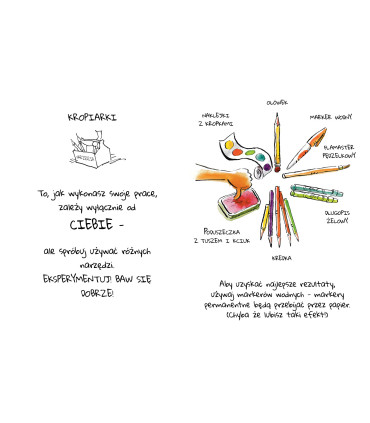 KROPIARKI
To, jak wykonasz swoje prace,
zależy wyłącznie od
CIEBIE -
ale spróbuj używać różnych
narzędzi.
EKSPERYMENTUJ! BAW SIĘ
DOBRZE!
OŁÓWEK
NAKLEJKI
Z KROPKAMI
MARKER WODNY
FLAMASTER
PĘDZELKOWY
DŁUGOPIS
ŻELOWY
PODUSZECZKA
Z TUSZEM I KCIUK
KREDKA
Aby uzyskać najlepsze rezultaty,
używaj markerów wodnych - markery
permanentne będą przebijać przez papier.
(Chyba że lubisz taki efekt!)